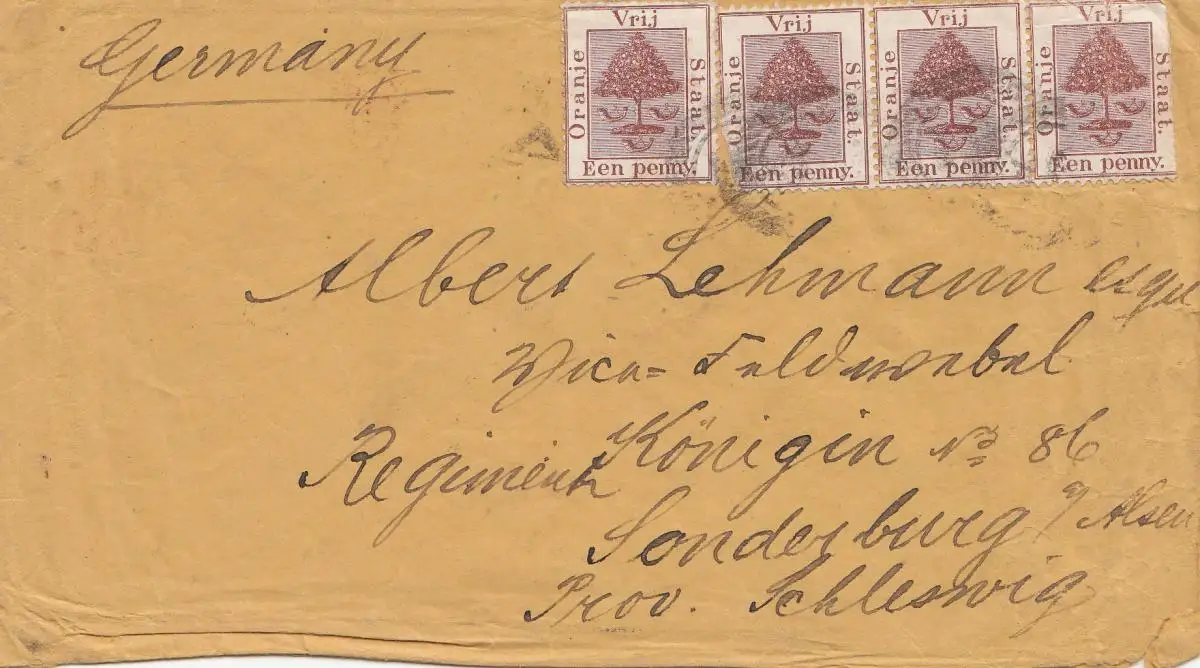 Germany
Vrij
Oranje
Staat.
Een penny.
Vrij
Oranje
Staat.
Een penny.
Vrij
Oranje
Staat.
Een penny.
Vrij
Oranje
Staat.
Een penny.
Albert Lehmann
Vice= Feldwebel
Regiment Königin No 86
Sonderburg a/ Alsen
Prov. Schleswig